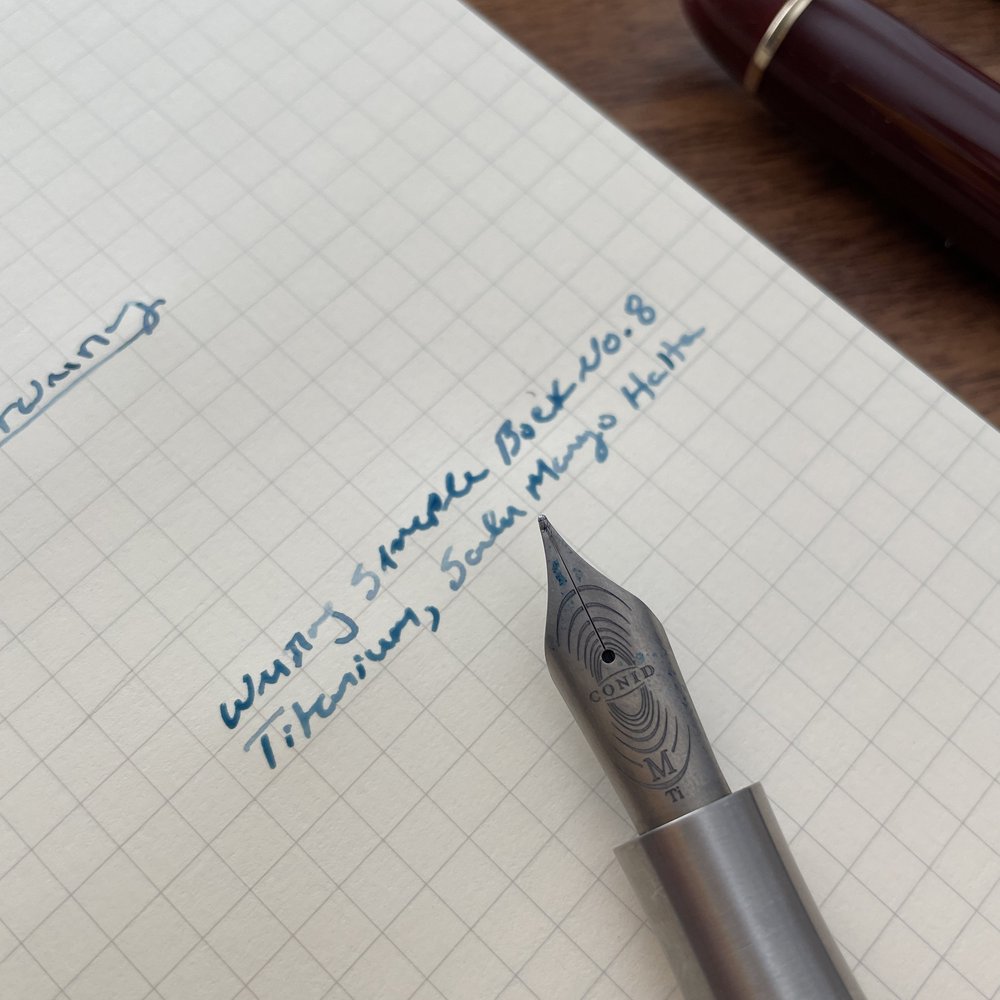 Writing Sample Bock No. 8
Titanium, Sailor Manyo Haha
CONID
M
Ti